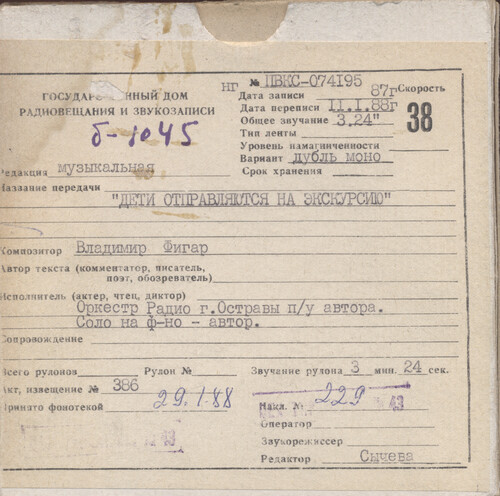 нг № ПВКС-074195
ГОСУДАРСТВЕННЫЙ ДОМ
РАДИОВЕЩАНИЯ И ЗВУКОЗАПИСИ
б-1045
Дата записи 87г
Дата переписи 11.I.88г
Общее звучание 3.24"
Тип ленты
Уровень намагниченности
Вариант дубль моно
Срок хранения
Скорость
38
Редакция музыкальная
Название передачи
"ДЕТИ ОТПРАВЛЯЮТСЯ НА ЭКСКУРСИЮ"
Композитор Владимир Фигар
Автор текста (комментатор, писатель,
поэт, обозреватель)
Исполнитель (актер, чтец, диктор)
Оркестр Радио г.Остравы п/у автора.
Соло на ф-но - автор.
Сопровождение
Всего рулонов Рулон № Звучание рулона 3 мин. 24 сек.
Акт, извещение № 386
Принято фонотекой 29.1.88 Накл. № 229 43
Оператор
Звукорежиссер
Редактор Сычева